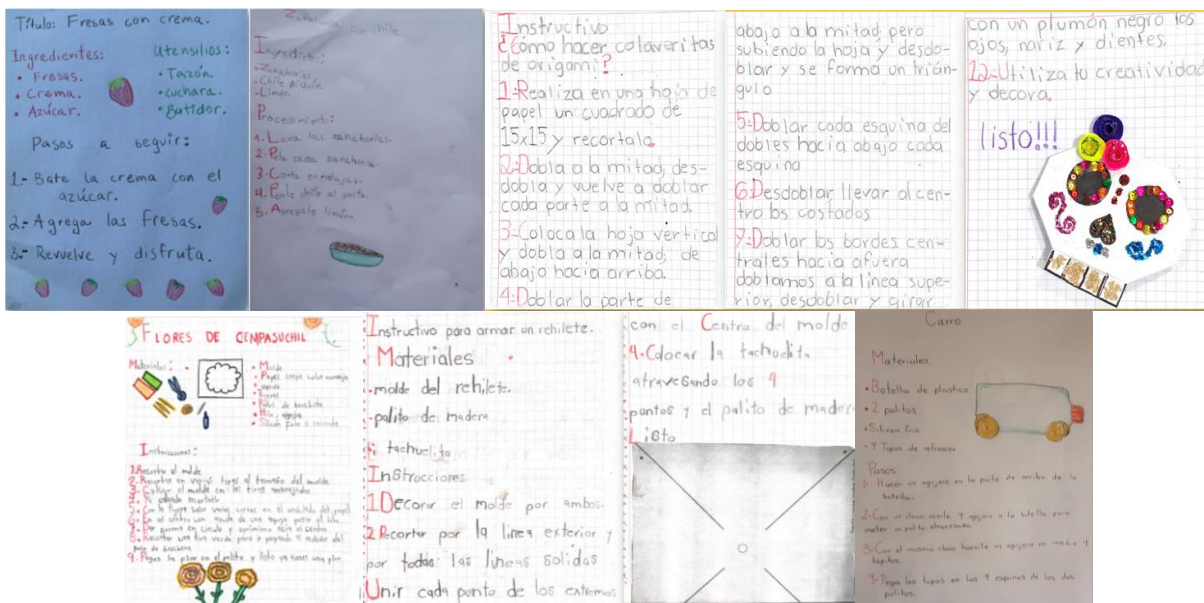 Título: Fresas con crema.
Ingredientes:
• Fresas.
• Crema.
• Azúcar.
Utensilios:
• Tazón.
• Cuchara.
• Batidor.
Pasos a seguir:
1.- Bate la crema con el
azúcar.
2.- Agrega las Fresas.
3.- Revuelve y disfruta.
con chile
Ingredientes:
-Zanahorias
-Chile piquín
-Limón
Procedimiento:
1. Lava las zanahorias.
2. Pela cada zanahoria.
3. Corta en
4. Ponle chile al gusto.
5. Agregale limón
Instructivo
¿Cómo hacer calaveritas
de origami?
1.-Realiza en una hoja de
papel un cuadrado de
15x15 y recortalo.
2.-Dobla a la mitad, des-
dobla y vuelve a doblar
cada parte a la mitad.
3-Coloca la hoja vertical
y dobla a la mitad; de
abajo hacia arriba.
4.-Doblar la parte de
abajo a la mitad; pero
subiendo la hoja y desdo-
blar y se forma un trián-
gulo
5.-Doblar cada esquina del
dobles hacia abajo cada
esquina
6.-Desdoblar llevar al cen-
tro los costados
7.-Doblar los bordes cen-
trales hacia afuera
doblamos a la línea supe-
rior, desdoblar y girar
con un plumón negro los
ojos, nariz y dientes.
12.-Utiliza tu creatividad
y decora.
listo!!!
FLORES DE CEMPASUCHIL
Materiales:
• Molde
• Papel crepe color naranja
verde
• Palos de brocheta
• Hilo, aguja
• Silicon frio o caliente
Instrucciones:
1.Recortar el molde
2.Recortar en varias tiras el tamaño del molde
3.Colocar el molde en las tiras
9.Pegar la flor en el palito y listo ya tienes una flor
Instructivo para armar un rehilete.
Materiales
•molde del rehilete.
•palito de madera
1 tachuelita
Instrocciones
1 Decorar el molde por ambos.
2 Recortar por la linea exterior y
por todas las lineas solidas
Unir cada punto de los extremos
con el Centro del molde
4.Colocar la tachuelita
atravesando los 4
puntos y el palito de madera
Listo
Carro
Materiales.
•Botella de plastico.
•2 palitos.
•Silicon frio
•4 Tapas de refresco.
Pasos:
1- Hacer un agujero en la parte de arriba de la
botella.
2-Con un clavo 4 agujero a la botella para
meter un palito
3-Con el mismo clavo hacerle un agujero en medio 4
tapitas.
4-Pega las tapas en las 4 esquinas de los dos
palitos.